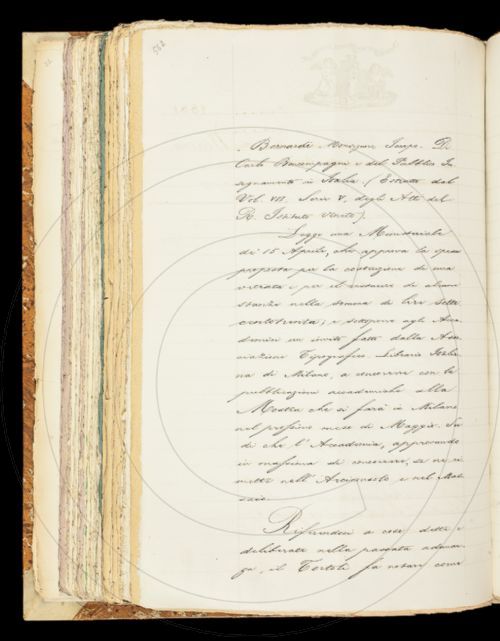 562
. Bernardi Monsignor Jacopo. Di
Carlo Boncompagni e del Pubblico In
segnamento in Italia. (Estratto dal
Vol. VII. Serie V. degli Atti del
R. Istituto Veneto).
Legge una Ministeriale
dei 15 Aprile, che approva la spesa
proposta per la costruzione di una
vetrata e per il restauro di alcune
stanze nella somma di lire sette
centotrenta; e sottopone agli Acca-
demici un invito fatto dalla Asso
ciazione Tipografico-Libraria Italia
na di Milano, a concorrere con le
pubblicazioni accademiche alla
Mostra che si farà in Milano
nel prossimo mese di Maggio. Su
di che l'Accademia, approvando
in massima di concorrere, se ne ri
mette nell'Arciconsolo e nel Mas
saio.
Riferendosi a cose dette e
deliberate nella passata adunan-
za, il Tortoli fa notare come